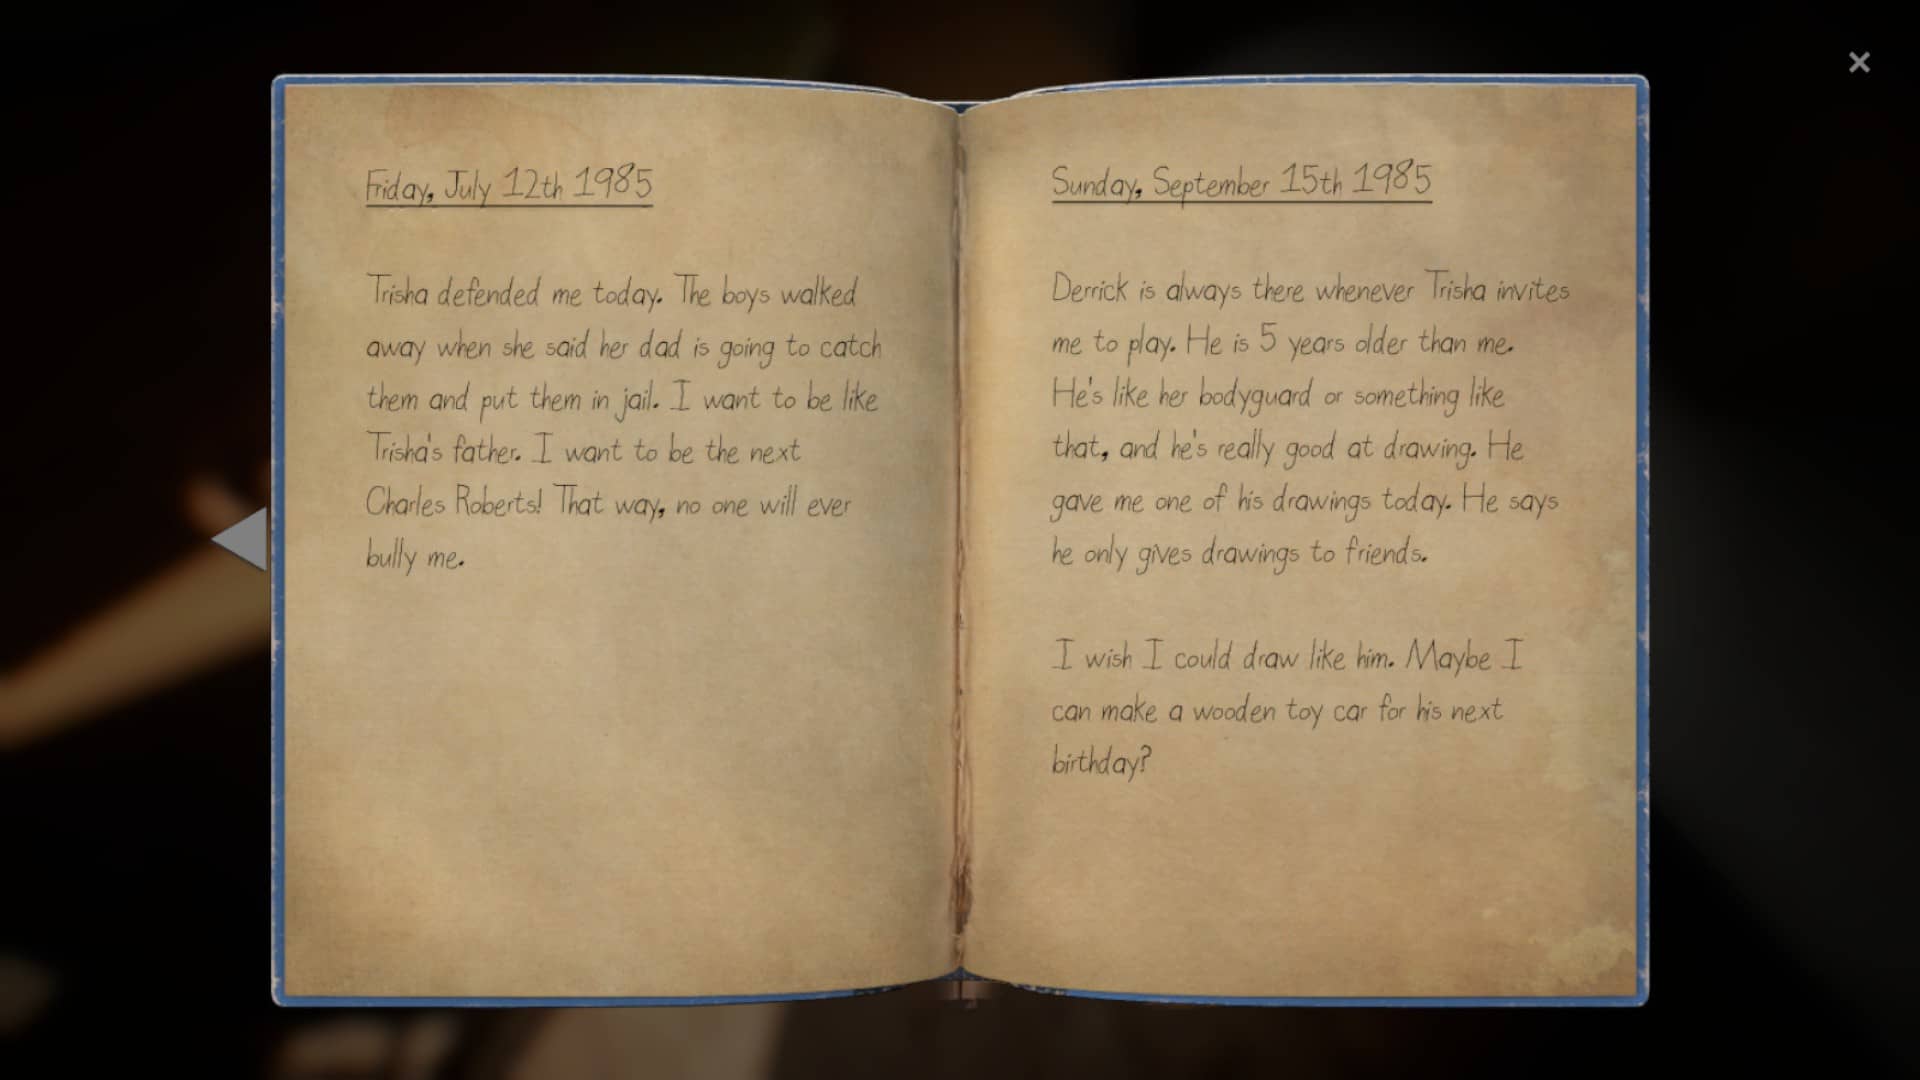 Friday, July 12th 1985
Trisha defended me today. The boys walked
away when she said her dad is going to catch
them and put them in jail. I want to be like
Trisha's father. I want to be the next
Charles Roberts! That way, no one will ever
bully me.
Sunday, September 15th 1985
Derrick is always there whenever Trisha invites
me to play. He is 5 years older than me.
He's like her bodyguard or something like
that, and he's really good at drawing. He
gave me one of his drawings today. He says
he only gives drawings to friends.
I wish I could draw like him. Maybe I
can make a wooden toy car for his next
birthday?